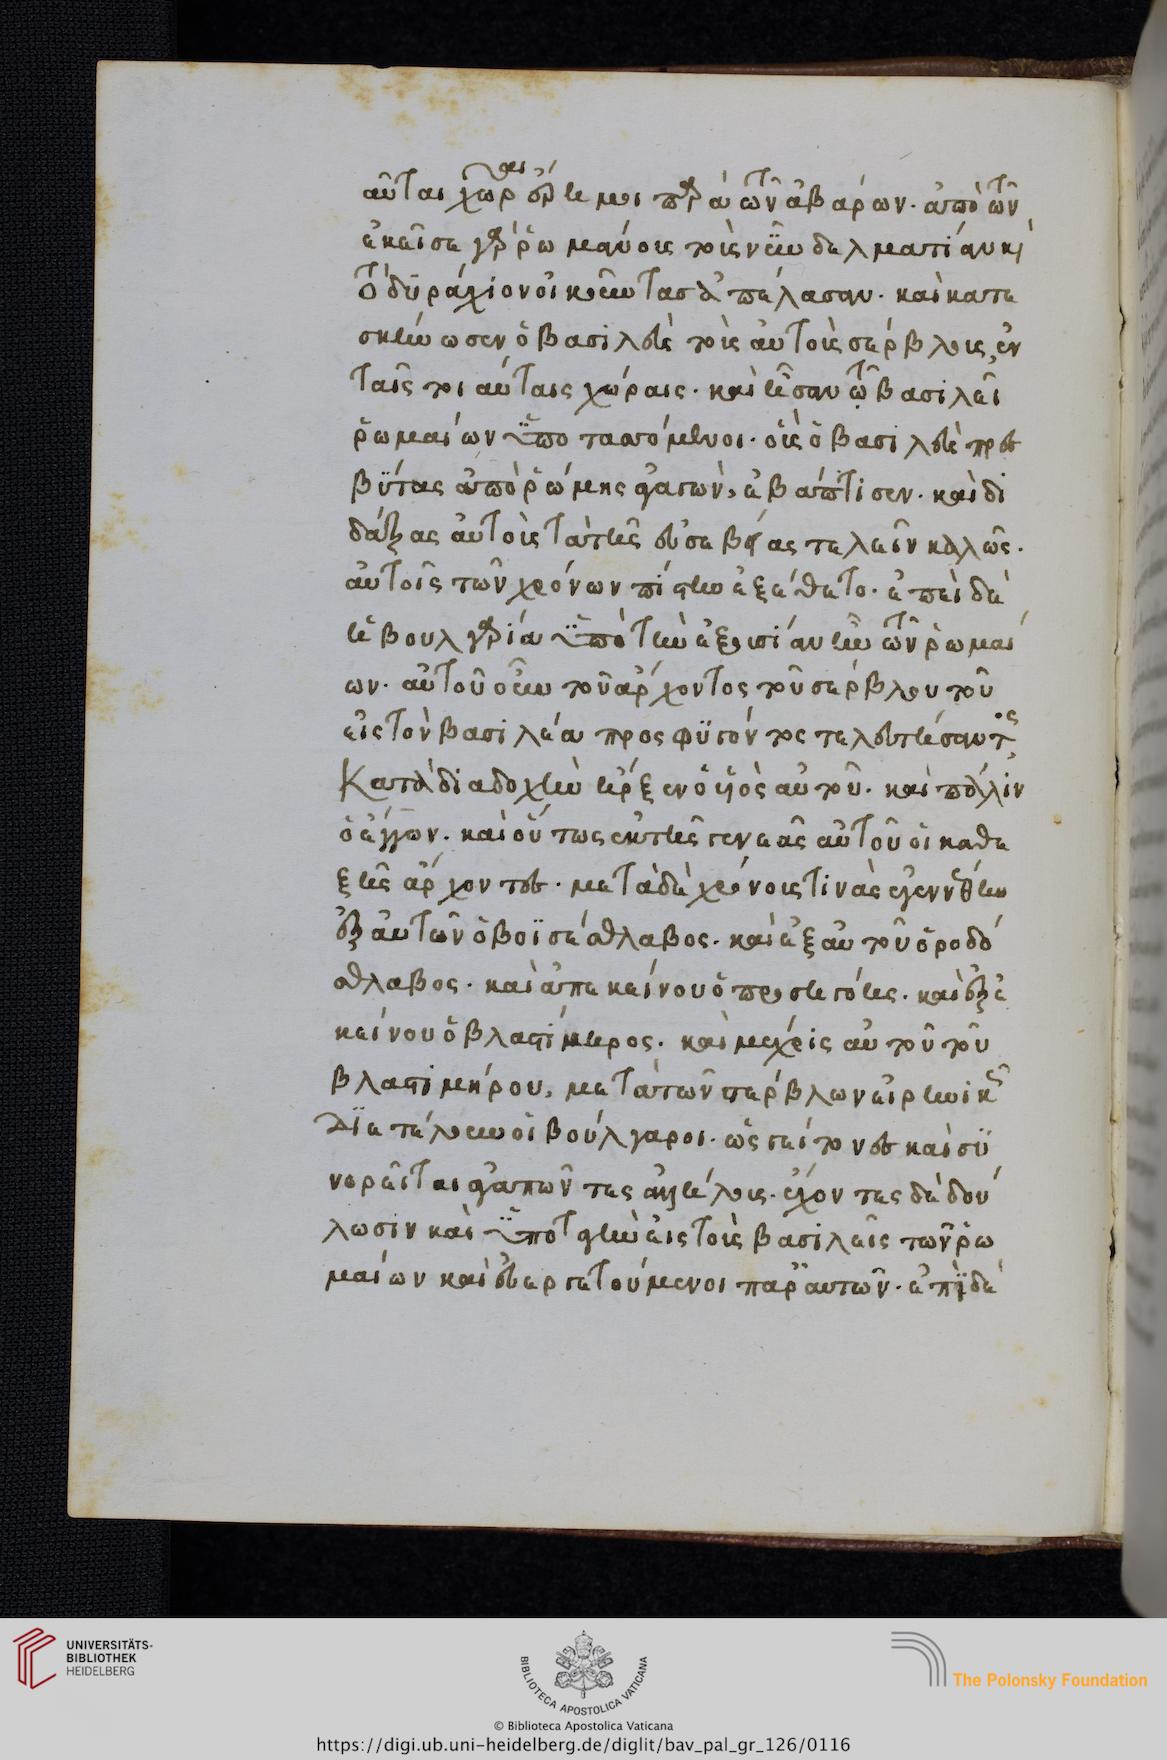 αὗται χῶραι ἔρημοι παρὰ τῶν ἀβάρων. ἀπὸ τῶν
ἐκεῖσε γὰρ ῥωμάνους τοὺς νῦν δελματίαν καὶ
τὸ δυράχιον οἰκοῦντας ἀπέλασαν. καὶ κατε
σκήνωσεν ὁ βασιλεὺς τοὺς αὐτοὺς σέρβλους ἐν
ταῖς τοιαύταις χώραις. καὶ ἦσαν τῷ βασιλεῖ
ῥωμαίων ὑποτασσόμενοι. οὓς ὁ βασιλεὺς πρεσ
βύτας ἀπὸ ῥώμης ἀγαγὼν, ἐβάπτισεν. καὶ δι
δάξας αὐτοὺς τὰ τῆς εὐσεβείας τελεῖν καλῶς.
αὐτοῖς τῶν χρόνων πίστιν ἐξέθετο. ἐπεὶ δὲ
ἡ βουλγαρία ὑπὸ τὴν ἐξουσίαν ἦν τῶν ῥωμαί
ων. αὐτοῦ οὖν τοῦ ἄρχοντος τοῦ σέρβλου τοῦ
εἰς τὸν βασιλέα προσφυγόντος τελευτήσαντος
κατὰ διαδοχὴν ἦρξεν ὁ υἱὸς αὐτοῦ. καὶ πάλιν
ὁ ἔγγων. καὶ οὕτως ἐκ τῆς γενεᾶς αὐτοῦ οἱ καθε
ξῆς ἄρχοντες. μετὰ δὲ χρόνους τινὰς ἐγεννήθη
ἐξ αὐτῶν ὁ βοϊσέσθλαβος. καὶ ἐξ αὐτοῦ ὁ ροδό
σθλαβος. καὶ ἀπ' ἐκείνου ὁ προσηγόης. καὶ ἐξ ἐ
κείνου ὁ βλαστίμηρος. καὶ μέχρις αὐτοῦ τοῦ
βλαστιμήρου, μετὰ τῶν σέρβλων εἰρηνικῶς
διετέλουν οἱ βούλγαροι. ὡς γείτονες καὶ συ
νορεῖται ἀγαπῶντες ἀλλήλους. ἔχοντες δὲ δού
λωσιν καὶ ὑποταγὴν εἰς τοὺς βασιλεῖς τῶν ῥω
μαίων καὶ εὐεργετούμενοι παρ' αὐτῶν. ἐπεὶ δὲ
UNIVERSITÄTS-
BIBLIOTHEK
HEIDELBERG
BIBLIOTECA APOSTOLICA VATICANA
The Polonsky Foundation
© Biblioteca Apostolica Vaticana
https://digi.ub.uni-heidelberg.de/diglit/bav_pal_gr_126/0116